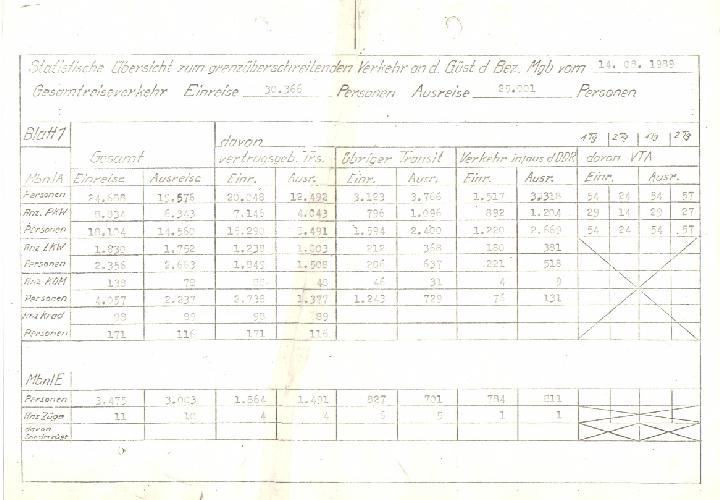 Statistische Übersicht zum grenzüberschreitenden Verkehr an d. Güst d Bez. Mgb vom 14. 08. 1989
Gesamtreiseverkehr Einreise 30.366 Personen Ausreise Personen
Blatt 1 davon 1Tg 2Tg 1Tg 2Tg
Gesamt vertragsgeb. Trs. übriger Transit Verkehr in/aus d DDR davon VTA
Mbnl A Einreise Ausreise Einr. Ausr. Einr. Ausr. Einr. Ausr. Einr. Ausr.
Personen 12.492 3.123 3.766 1.517 3.318 54 24 54 57
Anz. PKW 6.343 7.146 4.043 796 1.096 892 1.204 29 14 29 27
Personen 14.560 1.594 2.400 1.220 2.669 54 24 54 57
Anz LKW 1.830 1.752 1.238 1.003 212 368 180 381
Personen 2.356 637 221 518
Anz KOM 46 31 4
Personen 4.057 2.237 2.738 1.377 1.243 729 131
Anz Krad 99 99
Personen 171 116 171 116
Mbnl E
Personen 3.475 1.864 1.491 827 701 784 811
Anz Züge 11 10 4 4 5 1 1
davon